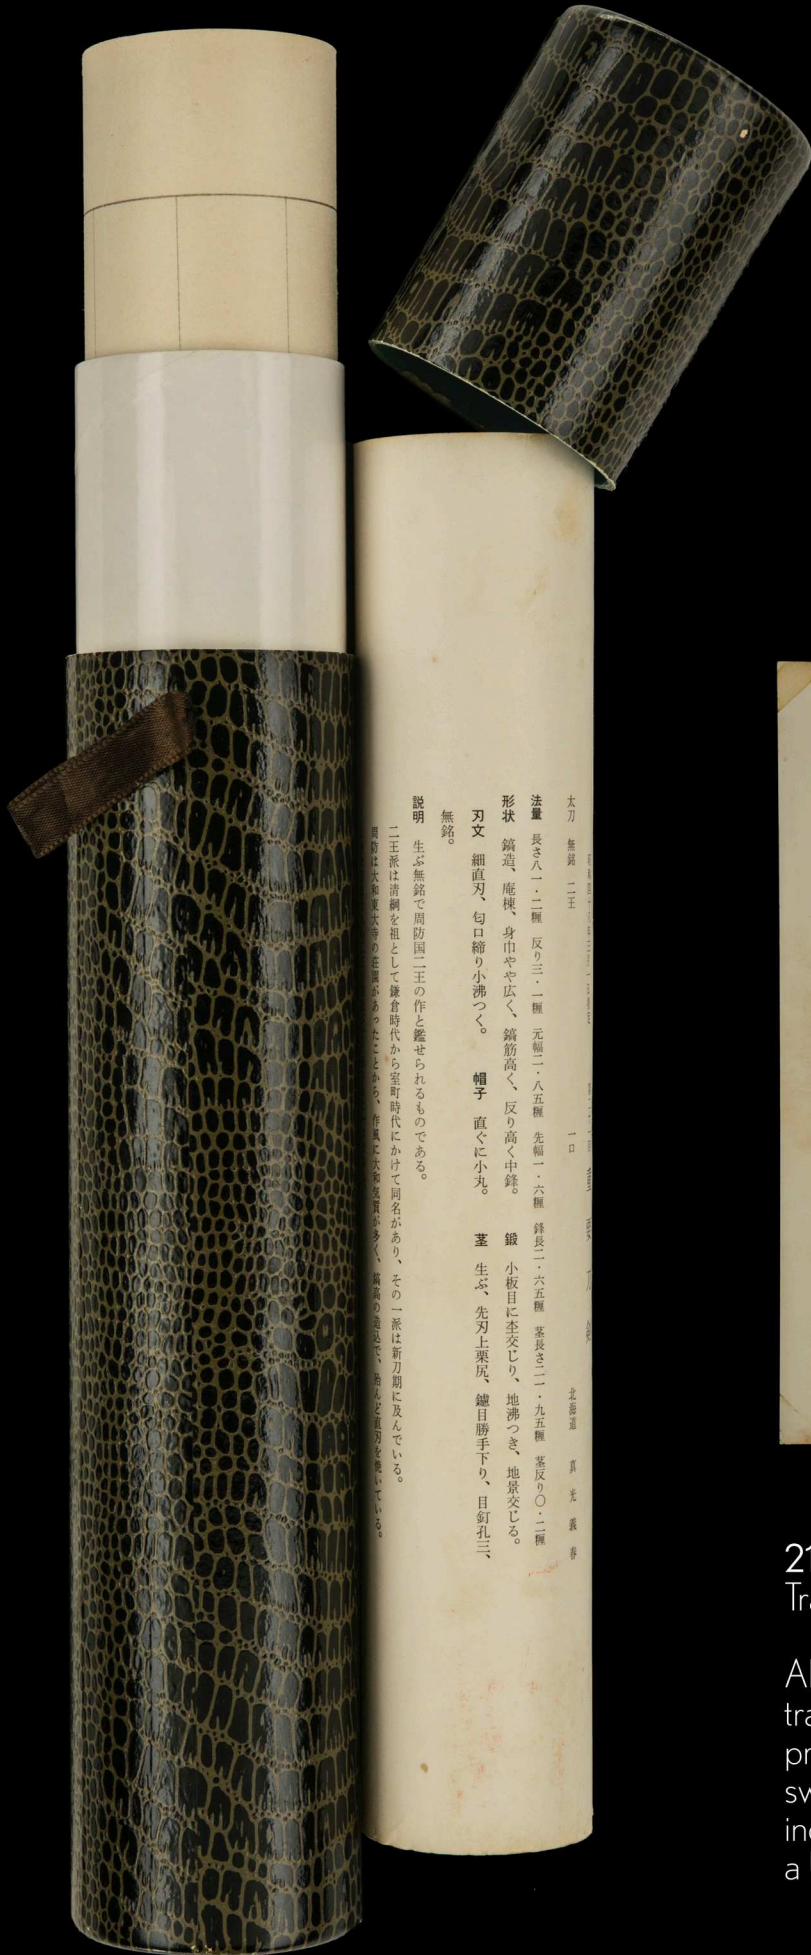 重要刀剣
太刀 無銘 二王 一口 北海道 真光義春
法量 長さ八一・二糎 反り三・一糎 元幅二・八五糎 先幅一・六糎 鋒長二・六五糎 茎長さ二一・九五糎 茎反り〇・二糎
形状 鎬造、庵棟、身巾やや広く、鎬筋高く、反り高く中鋒。 鍛 小板目に杢交じり、地沸つき、地景交じる。
刃文 細直刃、匂口締り小沸つく。 帽子 直ぐに小丸。 茎 生ぶ、先刃上栗尻、鑢目勝手下り、目釘孔三、
無銘。
説明 生ぶ無銘で周防国二王の作と鑑せられるものである。
二王派は清綱を祖として鎌倉時代から室町時代にかけて同名があり、その一派は新刀期に及んでいる。
周防は大和東大寺の荘園があったことから、作風に大和気質が多く、鎬高の造込で、殆んど直刃を焼いている。
21